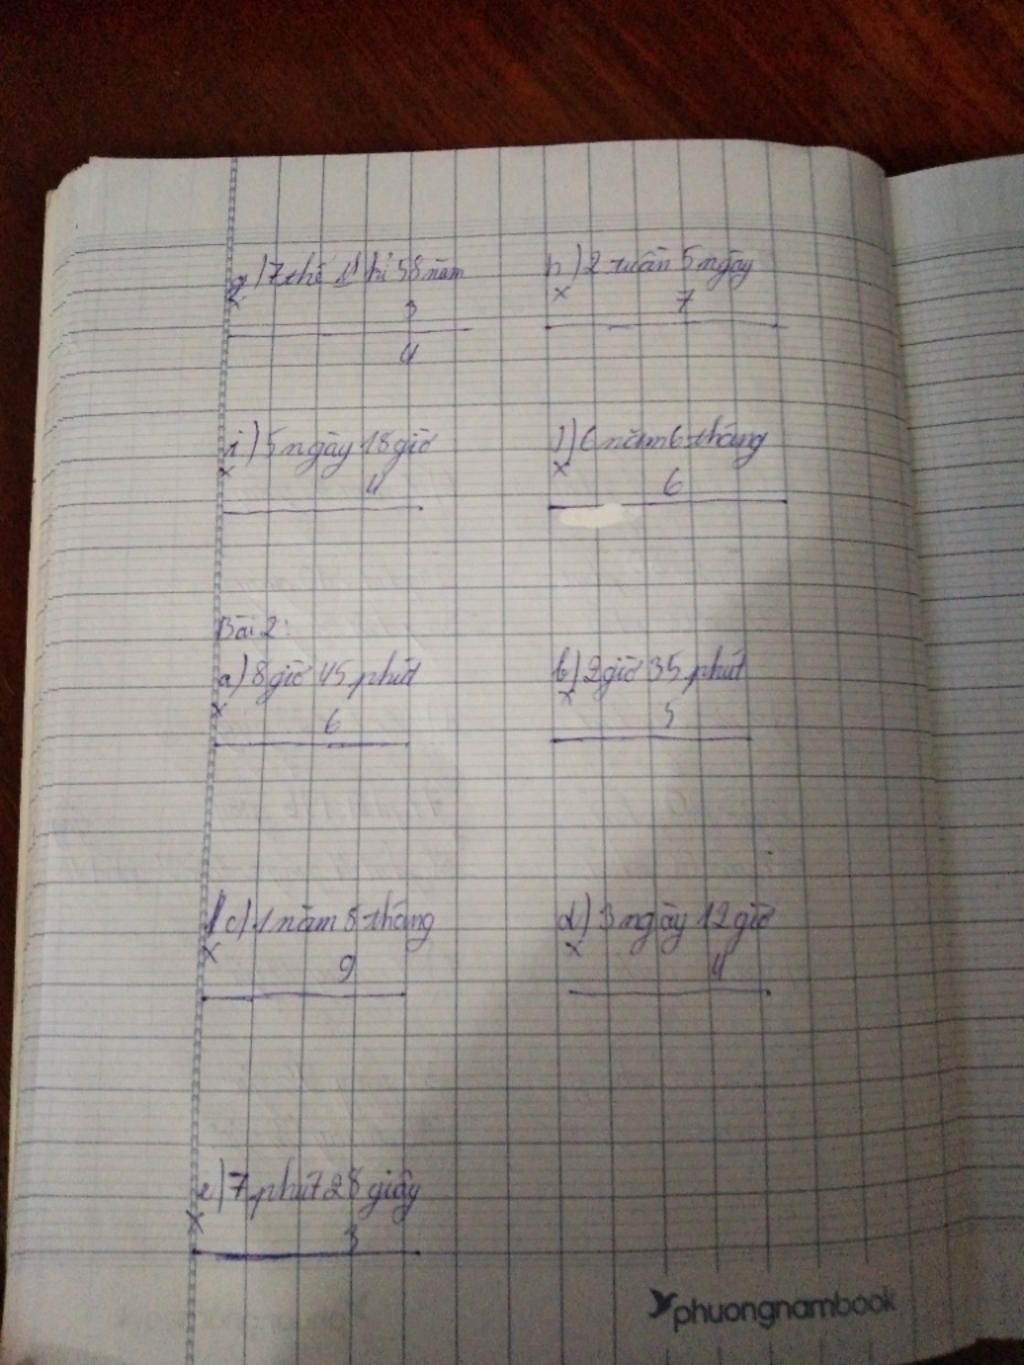 g) 7 thế kỉ 58 năm
x 3
4
h) 2 tuần 5 ngày
x 7
i) 5 ngày 18 giờ
x 4
l) 6 năm 6 tháng
x 6
Bài 2:
a) 8 giờ 45 phút
x 6
b) 2 giờ 35 phút
x 5
c) 1 năm 8 tháng
x 9
d) 3 ngày 12 giờ
x 4
e) 7 phút 28 giây
x 3
phuongnambook